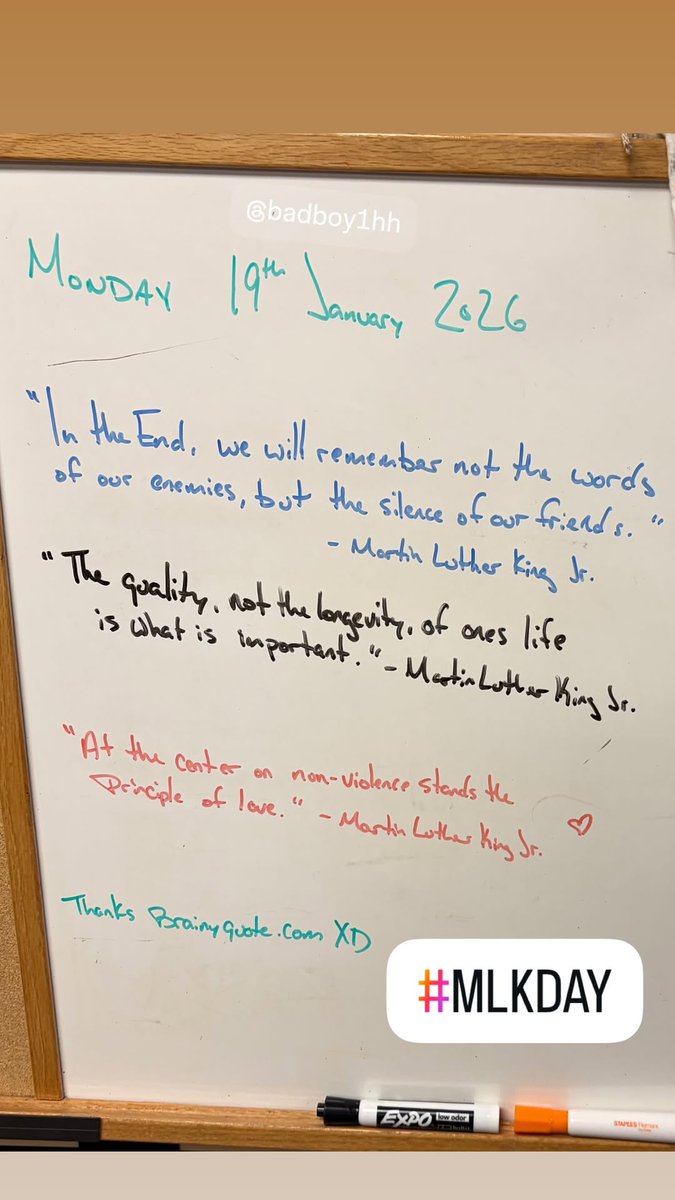 @badboy1hh
Monday 19th January 2026
"In the End, we will remember not the words
of our enemies, but the silence of our friends."
- Martin Luther King Jr.
"The quality, not the longevity, of ones life
is what is important." - Martin Luther King Jr.
"At the center on non-violence stands the
Principle of love." - Martin Luther King Jr.
Thanks Brainyquote.com XD
#MLKDAY
EXPO low odor
STAPLES